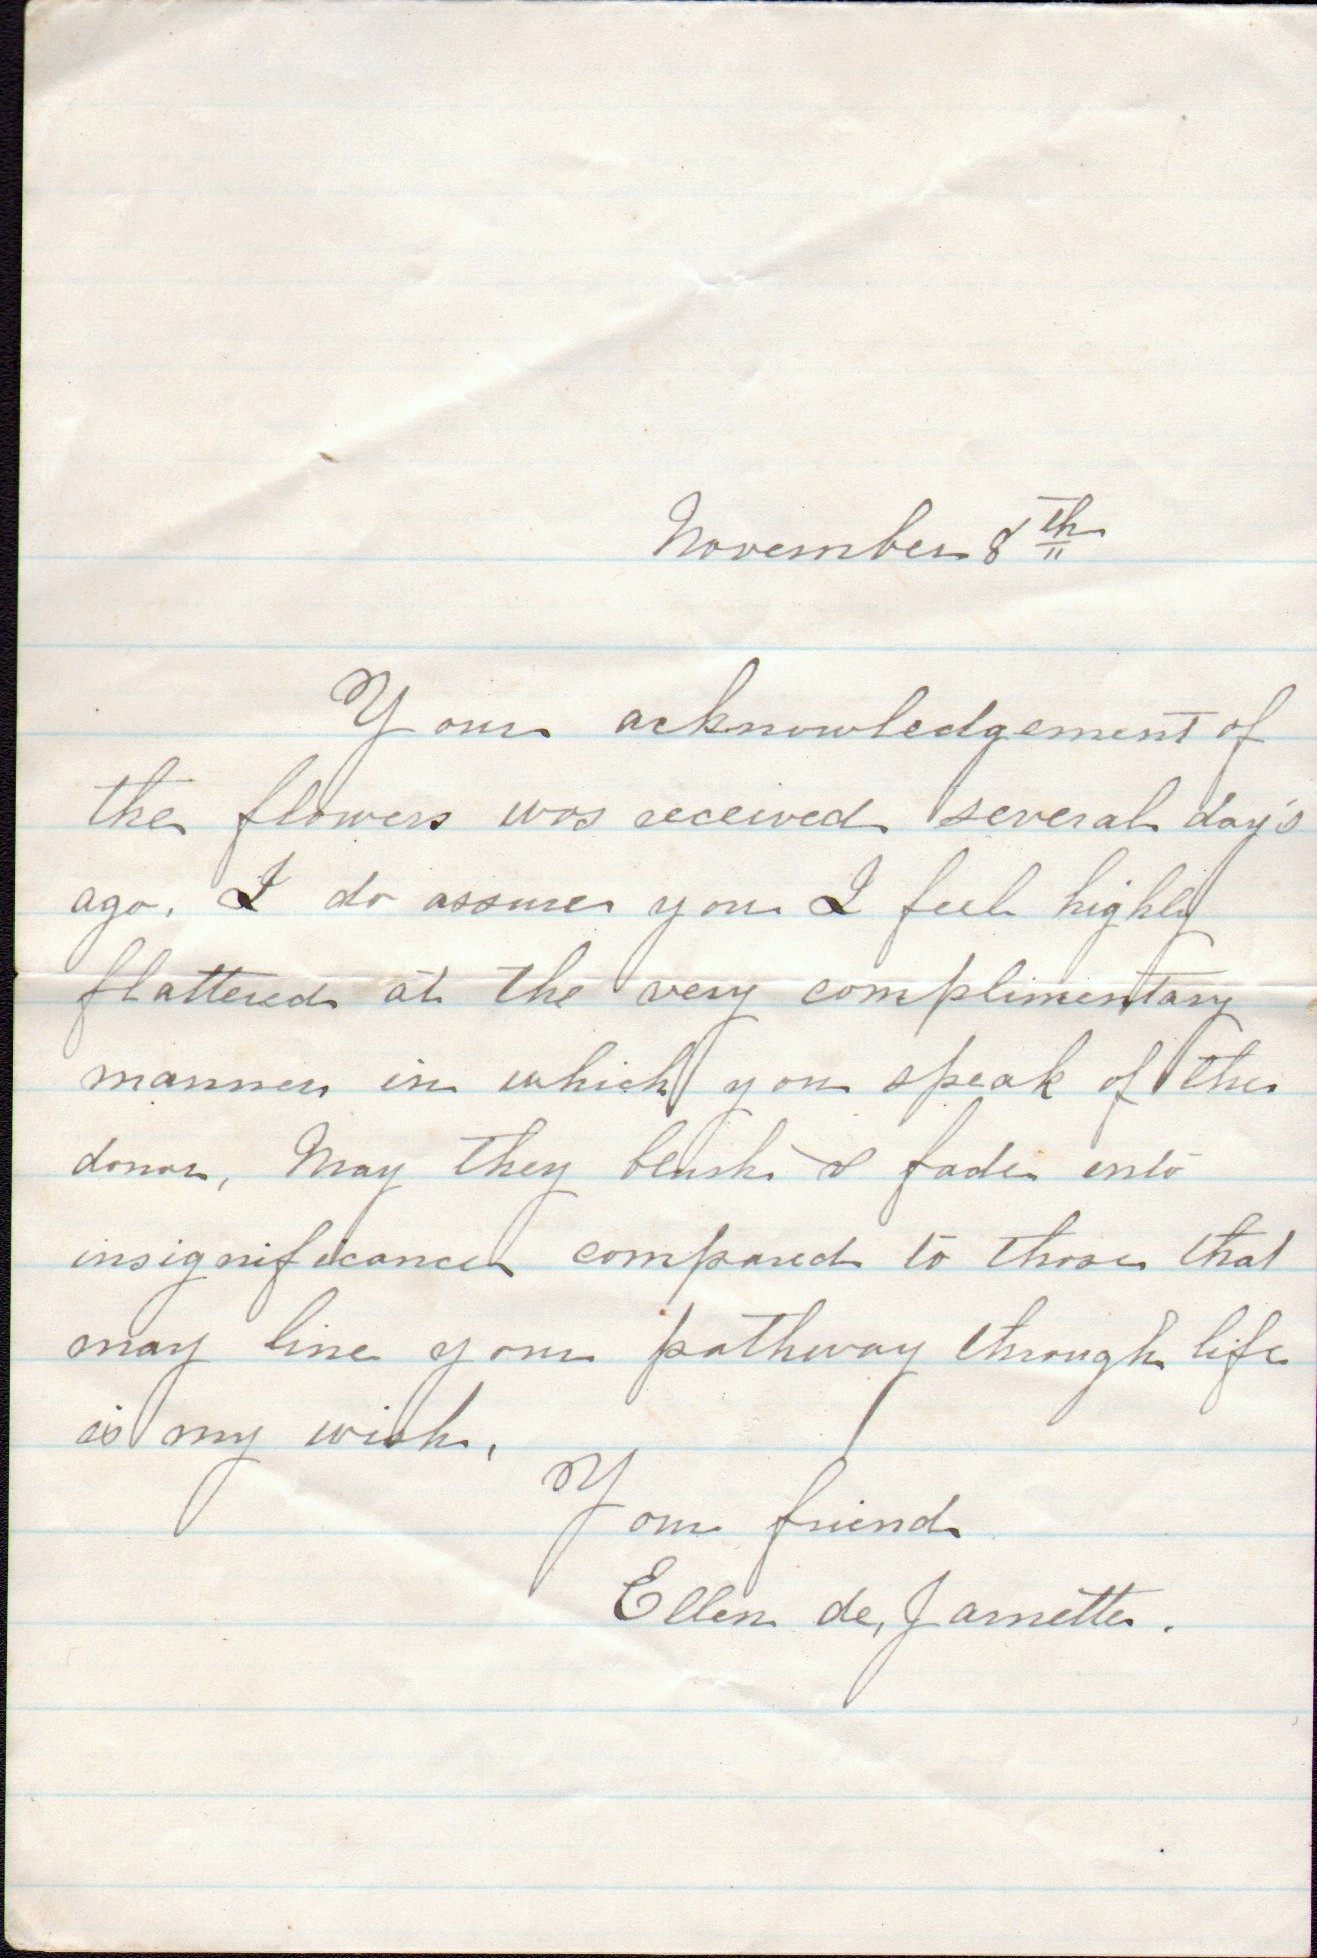 November 8th
Your acknowledgement of
the flowers was received several day's
ago. I do assure you I feel highly
flattered at the very complimentary
manner in which you speak of the
donor, May they blush & fade into
insignificance compared to those that
may line your pathway through life
is my wish.
Your friend
Ellen de, Jarnette.